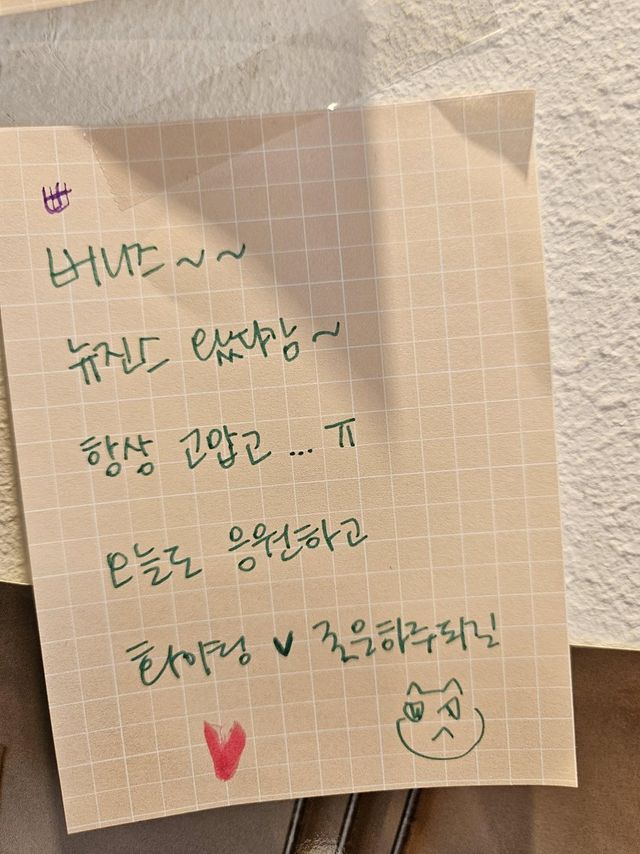 버니즈~~
뉴진스 왔다감~
항상 고맙고 ... ㅠ
오늘도 응원하고
화이팅 ♥ 좋은하루되길